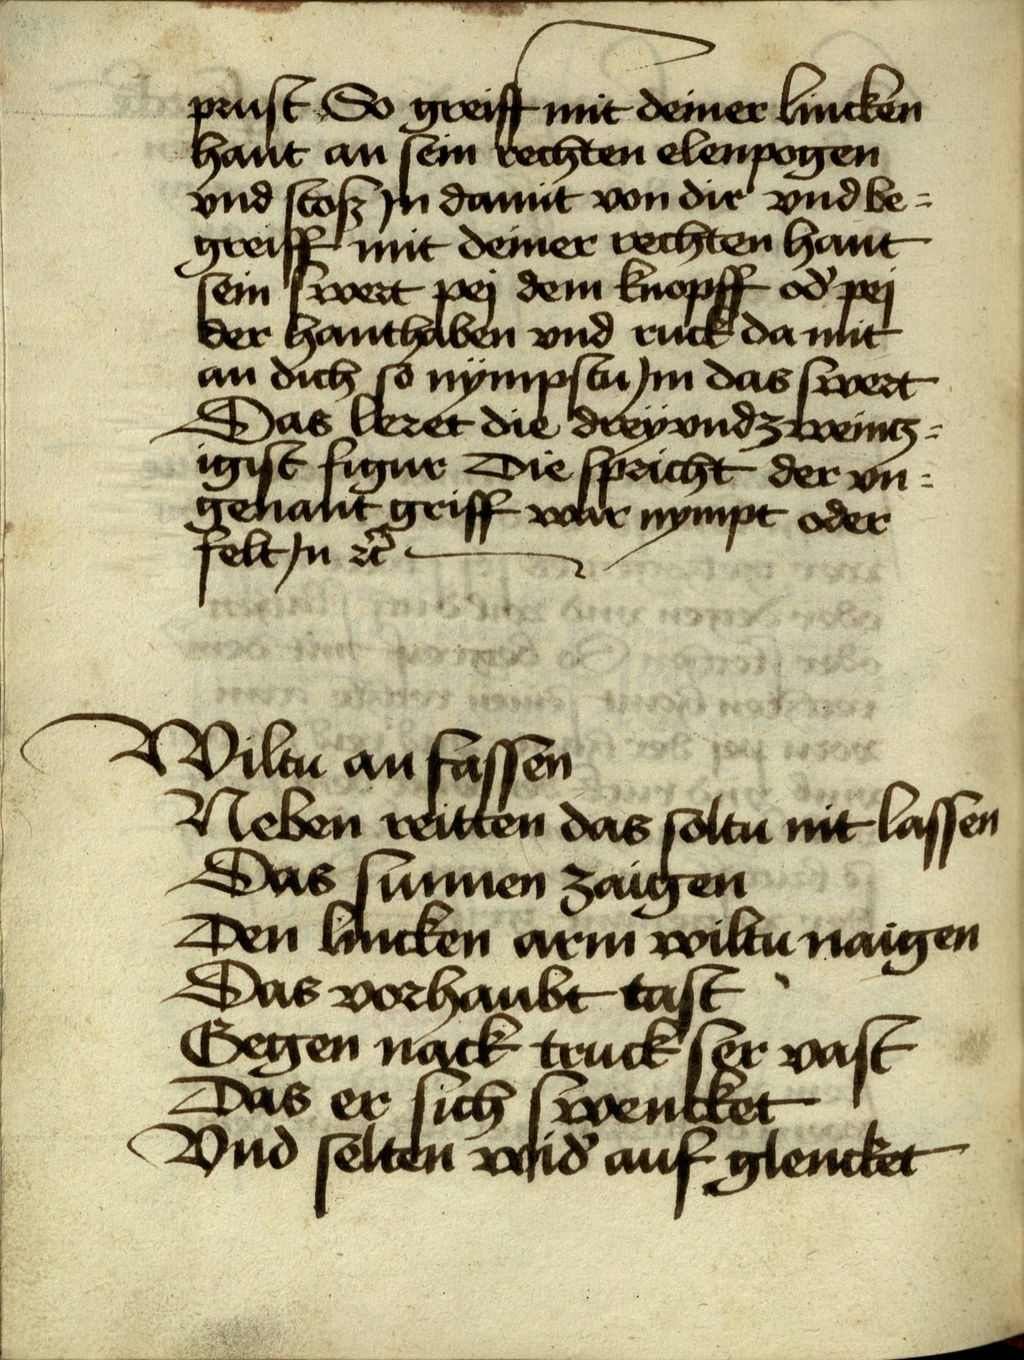 prust So greiff mit deiner lincken
hant an sein rechten elenpogen
vnd stosz Jn damit von dir vnd be=
greiff mit deiner rechten hant
sein swert pej dem knopff od' pej
der hanthaben vnd ruck da mit
an dich so nÿmpstu Jm das swert
Das leret die dreÿvndzweintz=
igist figur Die spricht der vn=
genant griff war nympt oder
felt Jn ꝛc̃
Wiltu an fassen
Neben reitten das soltu nit lassen
Das sunnen zaigen
Den lincken arm wiltu naigen
Das vorhaubt tast
Gegen nack truck ser vast
Das er sich swencket
Vnd selten wid' auf glencket